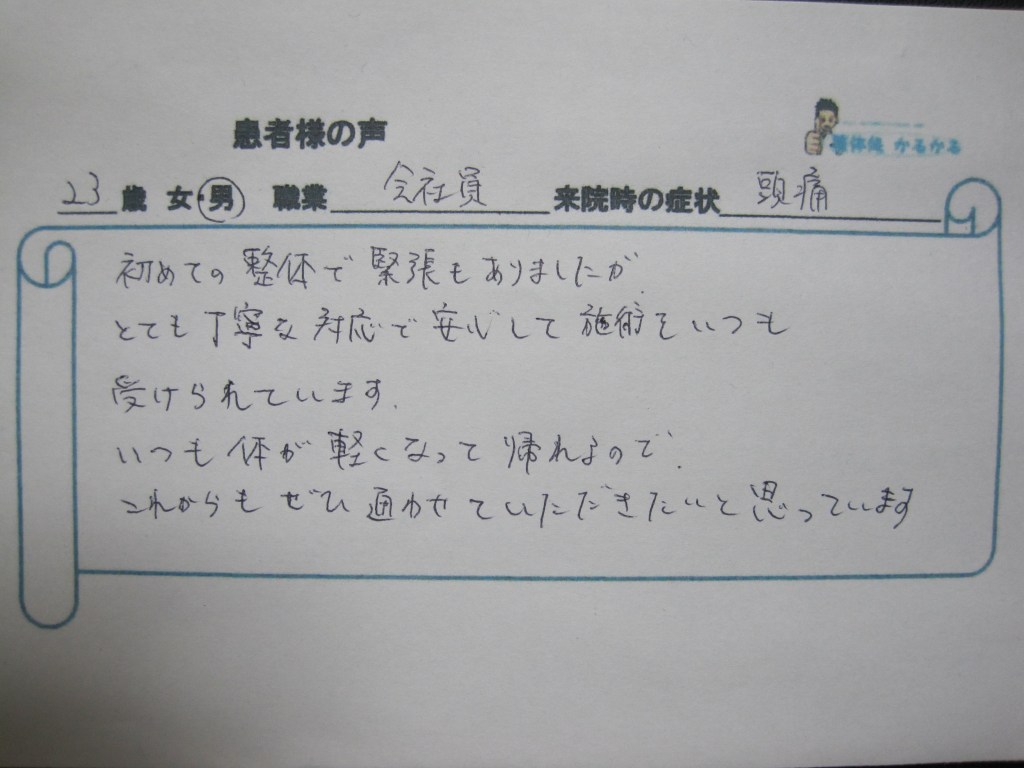 患者様の声
整体院 かるかる
23 歳 女・男 職業 会社員 来院時の症状 頭痛
初めての整体で緊張もありましたが、
とても丁寧な対応で安心して施術をいつも
受けられています。
いつも体が軽くなって帰れるので、
これからもぜひ通わせていただきたいと思っています